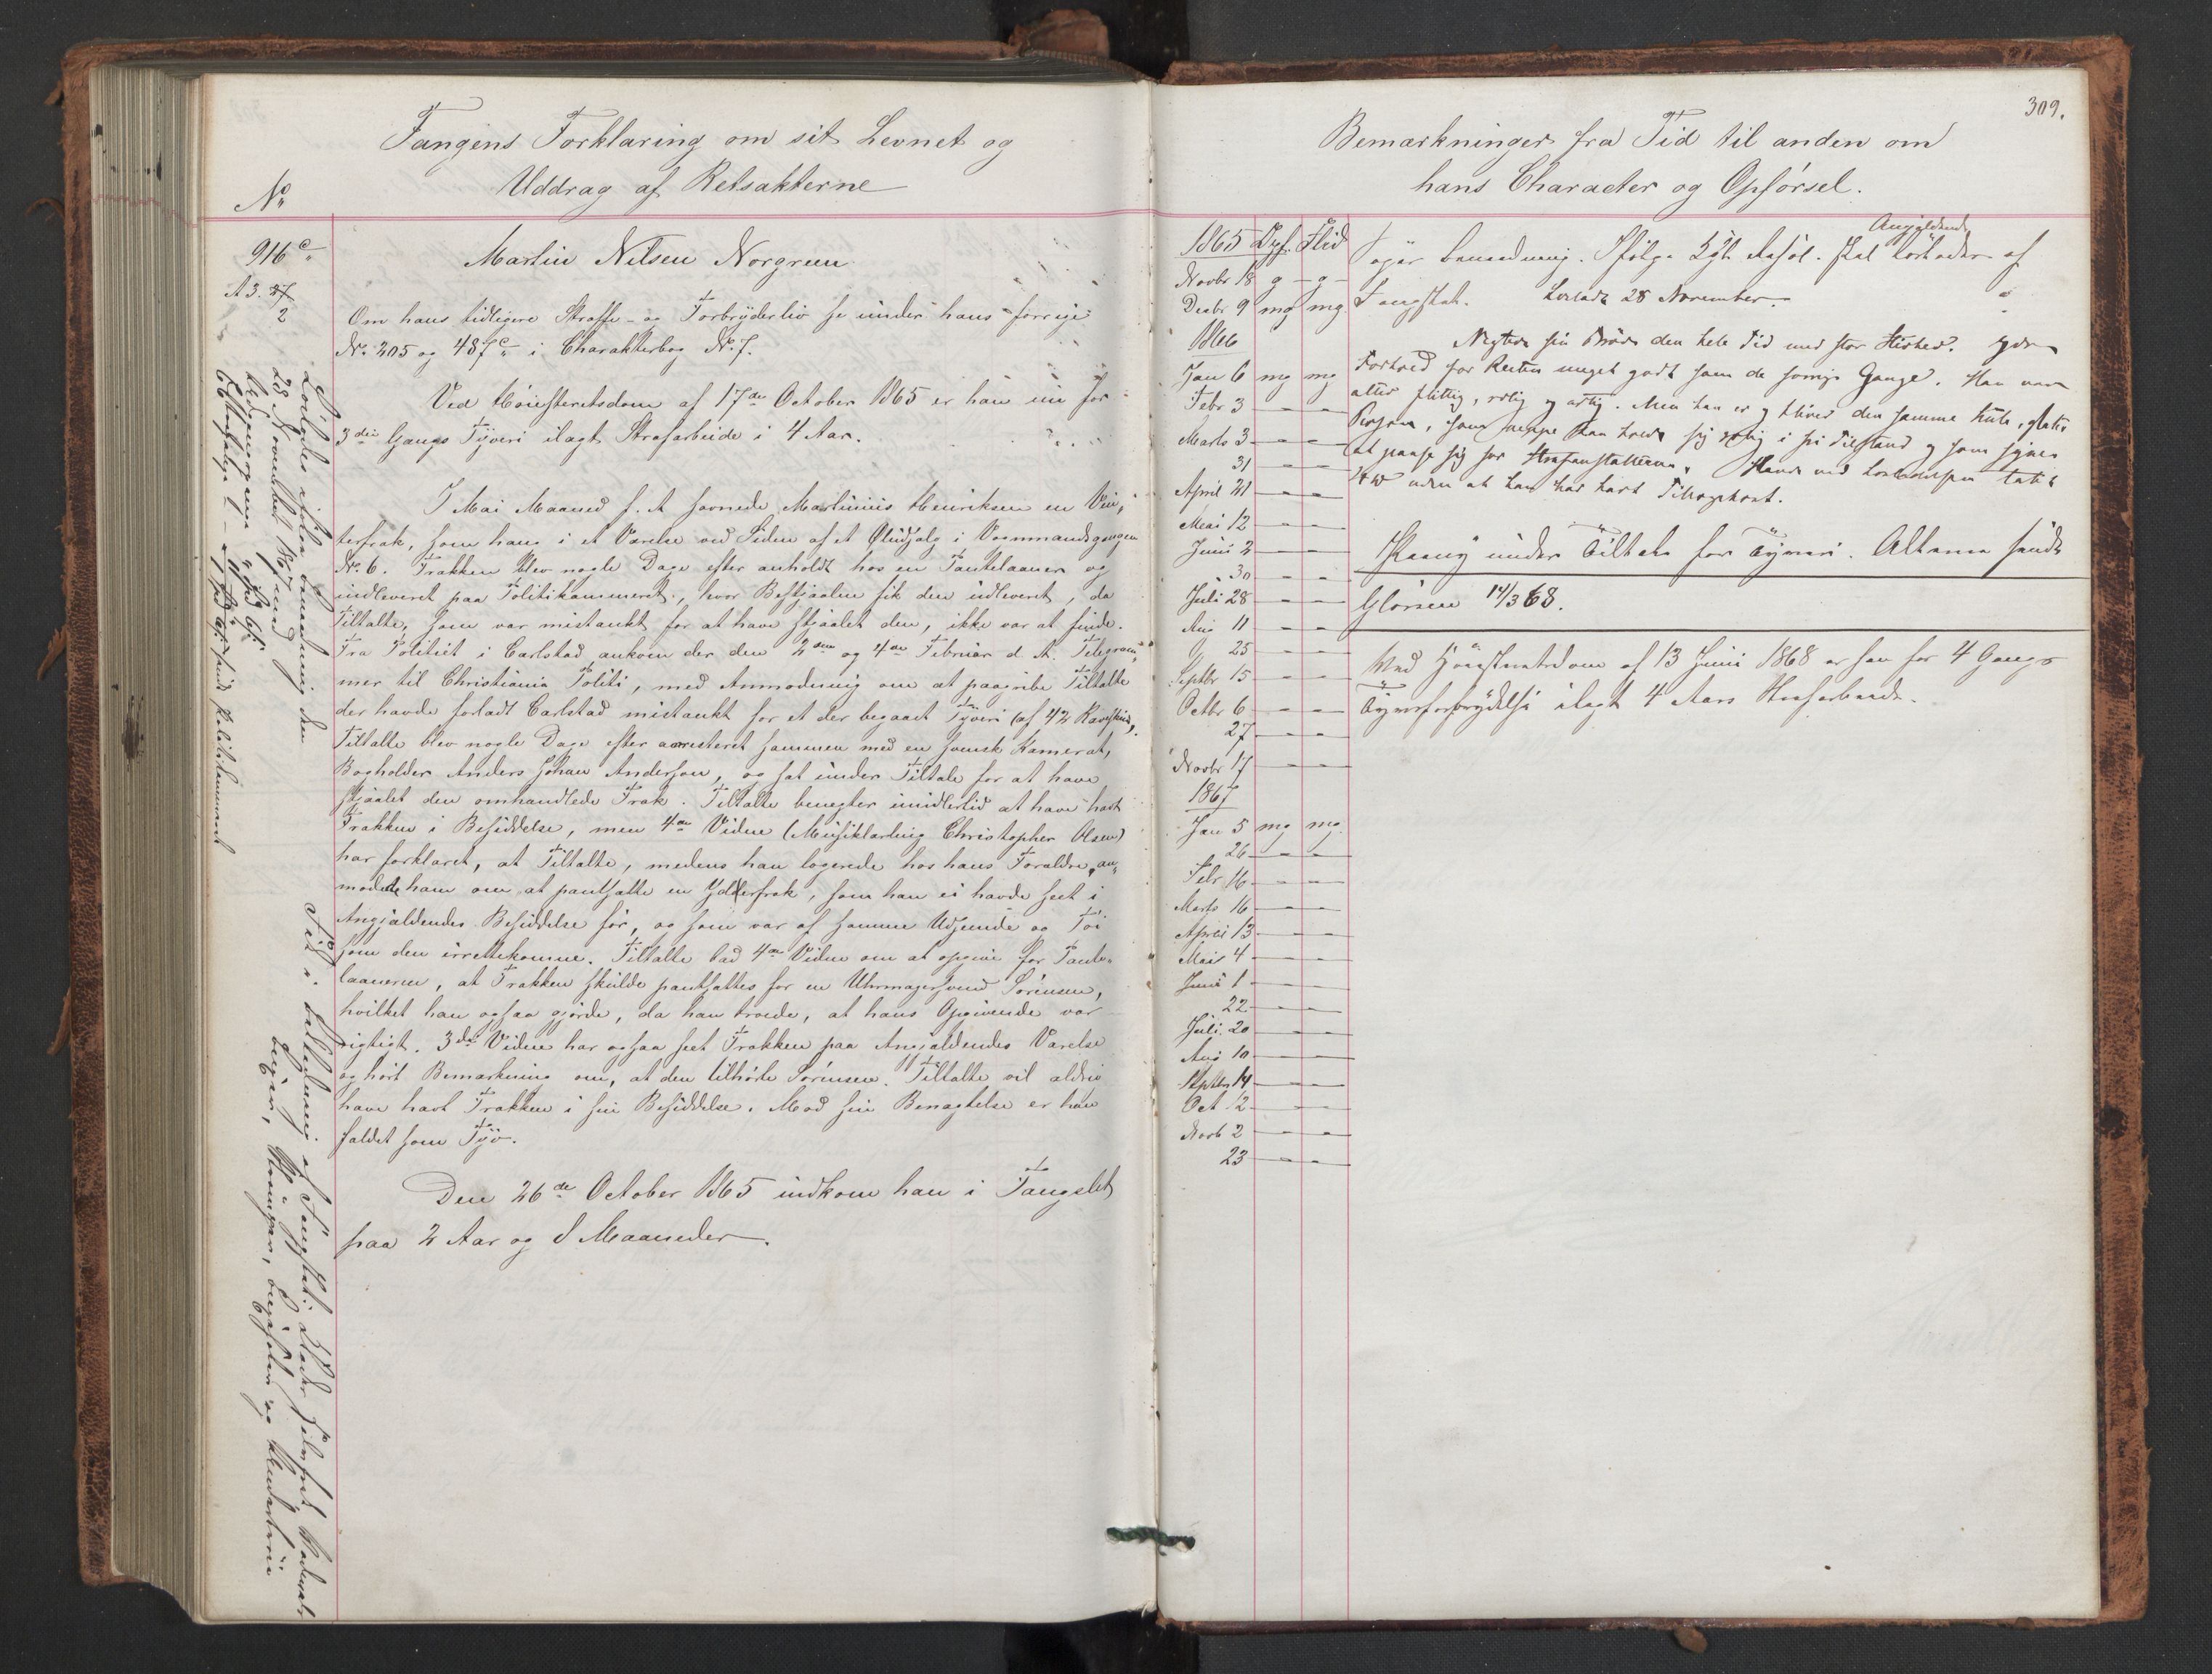 Fangens Forklaring om sit Levnet og
Uddrag af Retsakterne
No
916 c
A 3. 27
2
Martin Nilsen Norgreen
Om hans tidligere Straffe- og Forbryderliv se under hans forrige
No 205 og 487 c i Charakterbog No 7.
Ved Høiesteretsdom af 17de October 1865 er han nu for
3die Gangs Tyveri ilagt Strafarbeide i 4 Aar.
I Mai Maaned f. A savnede Martinius Henriksen en Vin-
terfrak, som hang i et Værelse ved Siden af et Øludsalg i Vognmandsgaden
No 6. Frakken blev nogle Dage efter anholdt hos en Pantelaaner og
indleveret paa Politikammeret, hvor Bestjaalne fik den udleveret, da
Tiltalte, som var mistænkt for at have stjaalet den, ikke var at finde.
Fra Politiet i Carlstad ankom der den 2den og 4de Februar d. A. Telegram-
mer til Christiania Politi, med Anmodning om at paagribe Tiltalte
der havde forladt Carlstad mistænkt for et der begaaet Tyveri (af 42 Ræveskind,
Tiltalte blev nogle Dage efter arresteret sammen med en svensk Kamerat,
Bogholder Anders Johan Anderson, og sat under Tiltale for at have
stjaalet den omhandlede Frak. Tiltalte benegter imidlertid at have havt
Frakken i Besiddelse, men 4de Vidne (Musiklærling Christopher Olsen)
har forklaret, at Tiltalte, medens han logerede hos hans Forældre, an-
modede ham om at pantsætte en Yderfrak, som han ei havde seet i
Angjældendes Besiddelse før, og som var af samme Udseende og Tøi
som den irettekomne. Tiltalte bad 4de Vidne om at opgive for Pante-
laaneren, at Frakken skulde pantsættes for en Uhrmagersvend Sørensen,
hvilket han ogsaa gjorde, da han troede, at hans Opgivende var
rigtigt. 3de Vidne har ogsaa seet Frakken paa Angjældendes Værelse
og hørt Bemærkning om, at den tilhørte Sørensen. Tiltalte vil aldrig
have havt Frakken i sin Besiddelse. Mod sin Benægtelse er han
fældet som Tyv.
Den 26de October 1865 indkom han i Fængslet
paa 2 Aar og 8 Maaneder.
Løslades ifølge Benaadning den
28 November 1867 med
Klædningen og
Til
309.
Bemærkninger fra Tid til anden om
hans Character og Opførsel.
1865 Opf. Flid
Novbr 18 g - g -
Decbr 9 mg mg
1866
Jan 6 mg mg
Febr 3 — —
Marts 3 — —
31 — —
April 21 — —
Mai 12 — —
Juni 2 — —
30 — —
Juli 28 — —
Aug 11 — —
25 — —
Septbr 15 — —
Octbr 6 — —
27 — —
Novbr 17 — —
1867
Jan 5 mg mg
26 — —
Febr 16 — —
Marts 16 — —
April 13 — —
Mai 4 — —
Juni 1 — —
22 — —
Juli 20 — —
Aug 10 — —
Septbr 14 — —
Oct 12 — —
Novb 2 — —
23 — —
Angjældende
Søger Benaadning. Ifølge Kgl. Resol. skal løslades af
Fængslet. Løsladt 28 November.
Negtede sin Brøde den hele Tid med stor Heftighed.
Forhold for Resten meget godt som de forrige Gange. Han var
altid flittig, rolig og artig. Men han er og bliver den samme
Person, som neppe kan holde sig rolig i fri Tilstand og som synes
at passe sig for Strafanstalterne.
uden at han har havt Tilregnet.
Paany under Tiltale for Tyveri. Akterne sendt
Glørsen 14/3 68.
Ved Høiesteretsdom af 13 Juni 1868 er han for 4 Gangs
Tyvsforbrydelse ilagt 4 Aars Strafarbeide.